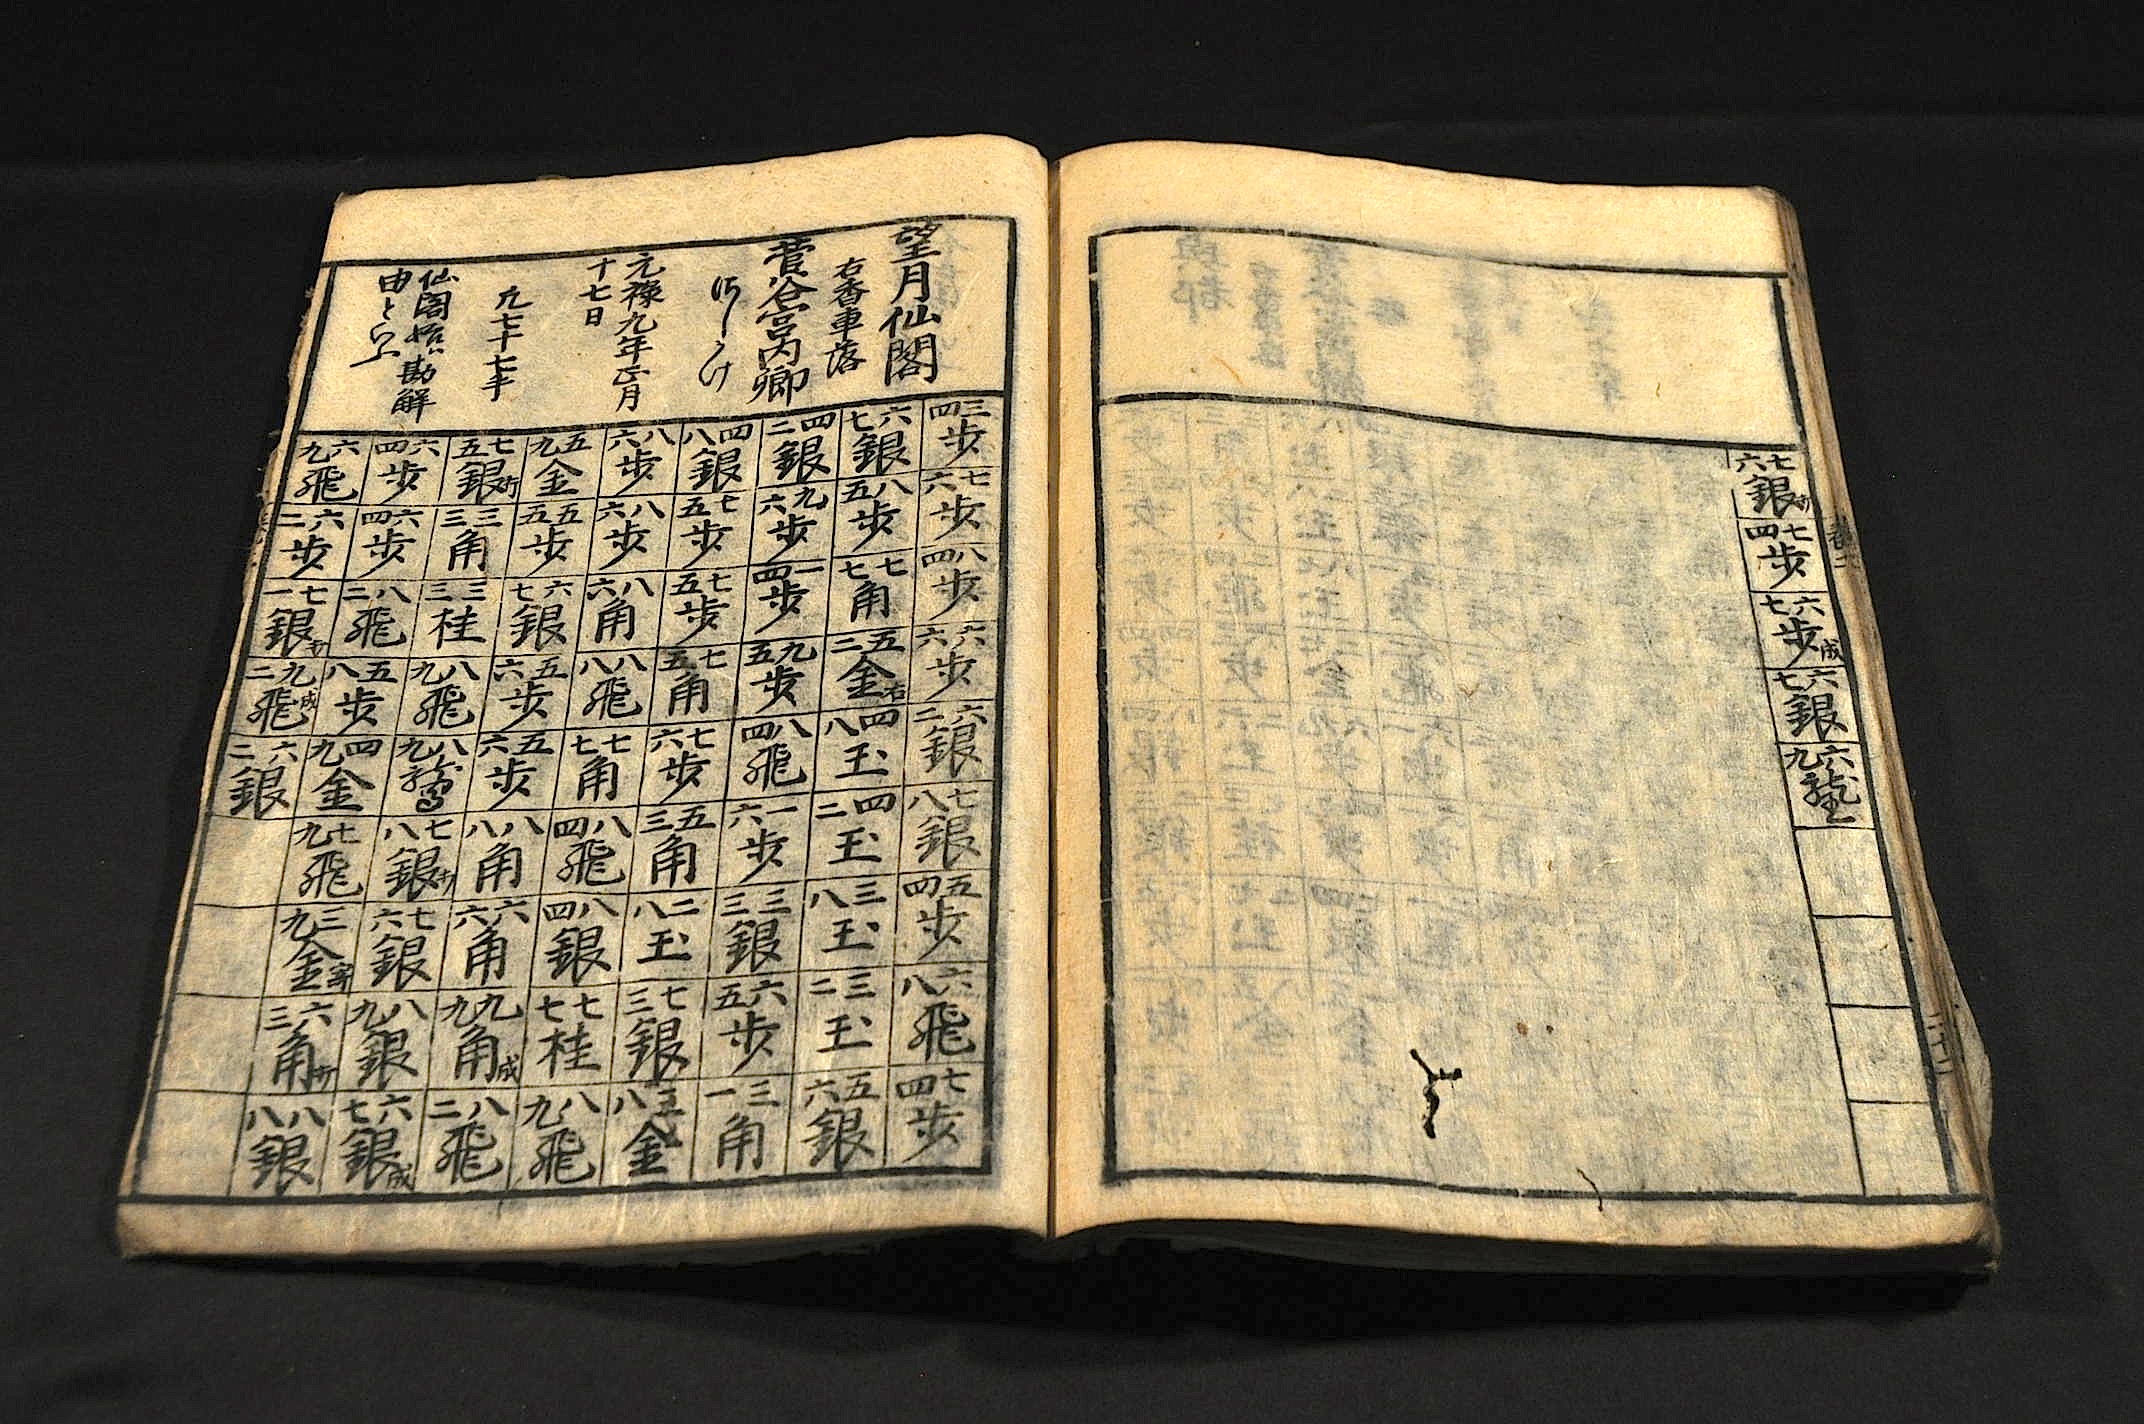 七六銀打
七四歩
六七歩成
六七銀
六九龍
望月仙閣
右香車落
菅谷宮内卿
元禄九年正月
十七日
凡七十七手
仙閣始ハ勘解
由と
三四歩
七六歩
八四歩
六六歩
六二銀
七八銀
五四歩
六八飛
七四歩
六七銀
八五歩
七七角
五二金右
四八玉
四二玉
三八玉
三二玉
五六銀
四二銀
九六歩
一四歩
九五歩
八四飛
一六歩
三三銀
六五歩
三一角
四八銀
七五歩
七五歩
七五角
七六歩
五三角
二八玉
七三銀
八金
八六歩
八六歩
八六角
八八飛
七七角
八四飛
八四銀
七七桂
八九飛
五九金
五五歩
六七銀
五六歩
五六歩
八八角
六六角
九九角成
八二飛
七五銀打
三三角
三三桂
八九飛
八九
七八銀打
七六銀
八九銀
六七銀成
六四歩
六四歩
八二飛
五八歩
四九金
七九飛
三九金寄
六三角打
八八銀
六九飛
六二歩
七一銀打
九二飛成
六二銀